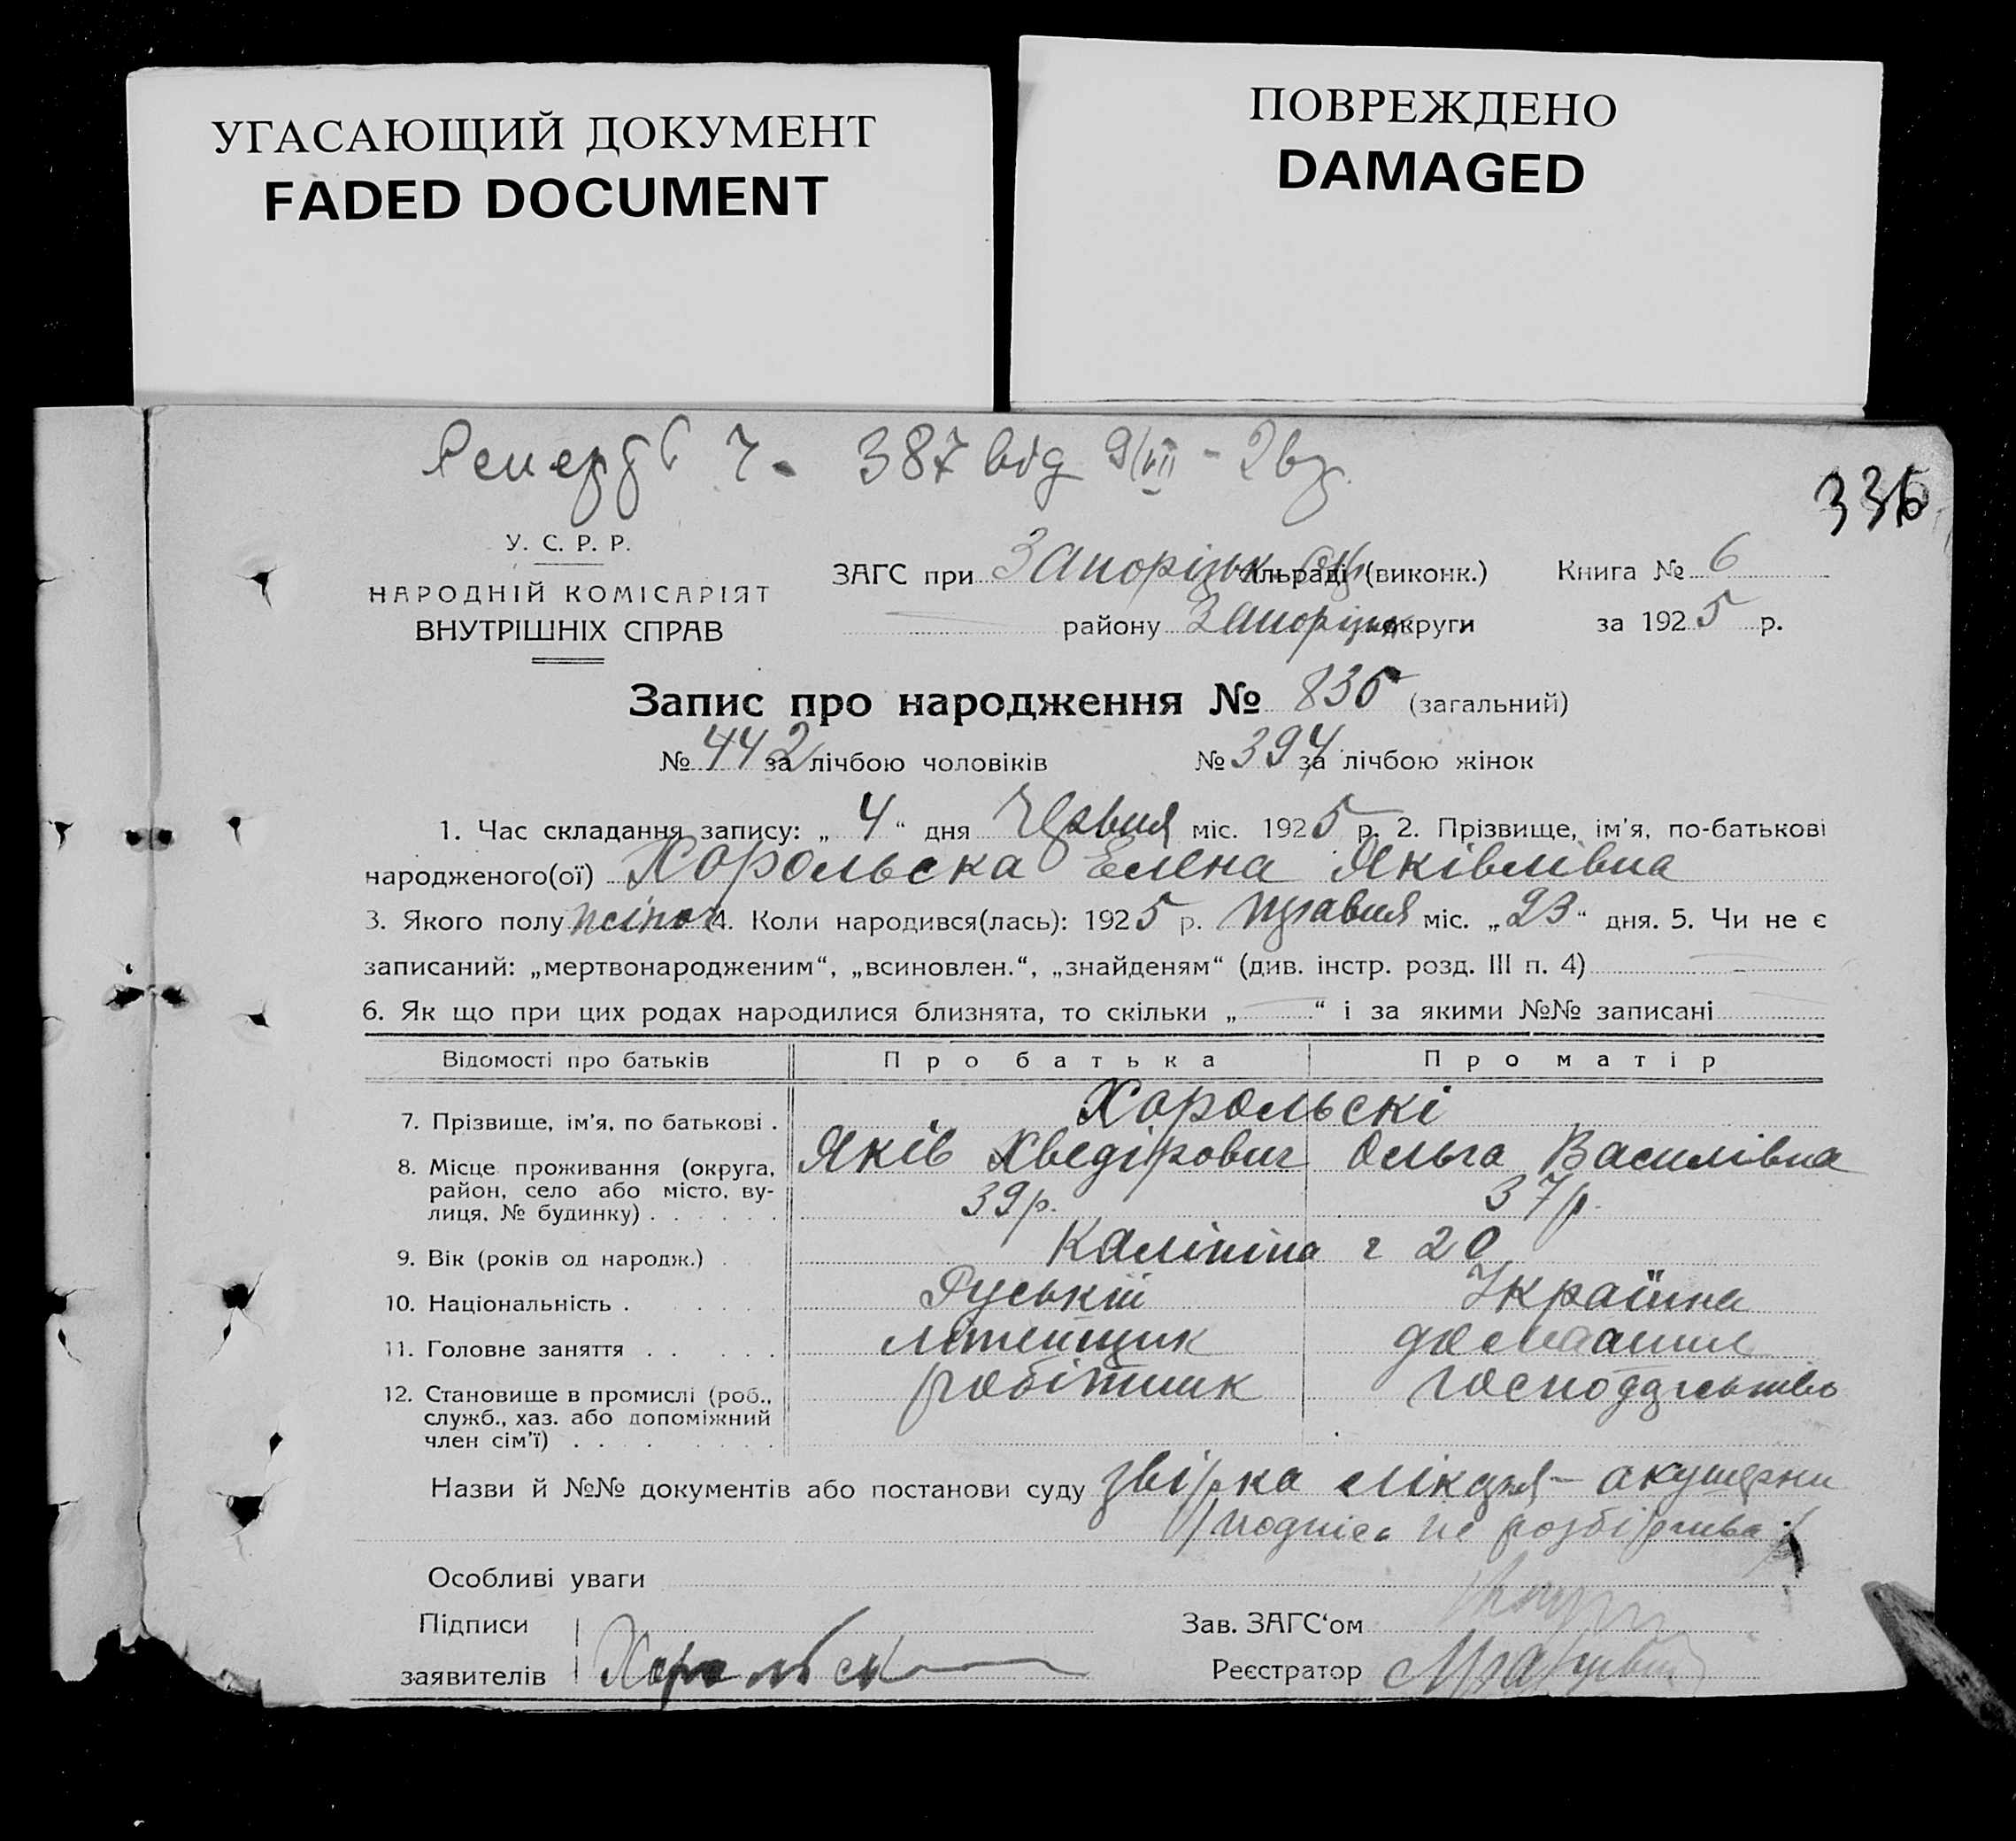 УГАСАЮЩИЙ ДОКУМЕНТ
FADED DOCUMENT
ПОВРЕЖДЕНО
DAMAGED
ч. 387 від 9/VII - 26 р.
336
У. С. Р. Р.
НАРОДНІЙ КОМІСАРІЯТ
ВНУТРІШНІХ СПРАВ
ЗАГС при Запорізьк. Окр сільраді (виконк.) Книга № 6
району Запорізьк округи за 1925 р.
Запис про народження № 835 (загальний)
№ 442 за лічбою чоловіків № 394 за лічбою жінок
1. Час складання запису: „ 4 “ дня Червня міс. 1925 р. 2. Прізвище, ім'я, по-батькові
народженого(ої) Хорольска Елена Яківлівна
3. Якого полу жіноч 4. Коли народився(лась): 1925 р. травня міс. „23“ дня. 5. Чи не є
записаний: „мертвонародженим“, „всиновлен.“, „знайденям“ (див. інстр. розд. III п. 4)
6. Як що при цих родах народилися близнята, то скільки „ “ і за якими №№ записані
Відомості про батьків Про батька Про матір
7. Прізвище, ім'я, по батькові . Хорольскі
8. Місце проживання (округа, Яків Хведірович Ольга Василівна
район, село або місто, ву-
лиця, № будинку) . . . . . . 39 р. 37 р.
9. Вік (років од народж.) . Калініна 20
10. Національність . . . . . Руський Українка
11. Головне заняття . . . . . литейщик домашнє
12. Становище в промислі (роб., робітник господарьство
служб., хаз. або допоміжний
член сім'ї) . . . . . . . .
Назви й №№ документів або постанови суду звірка лікаря - акушерки
/подпісь не розбірчива/
Особливі уваги
Підписи Зав. ЗАГС‘ом
заявителів Хорольск Реєстратор